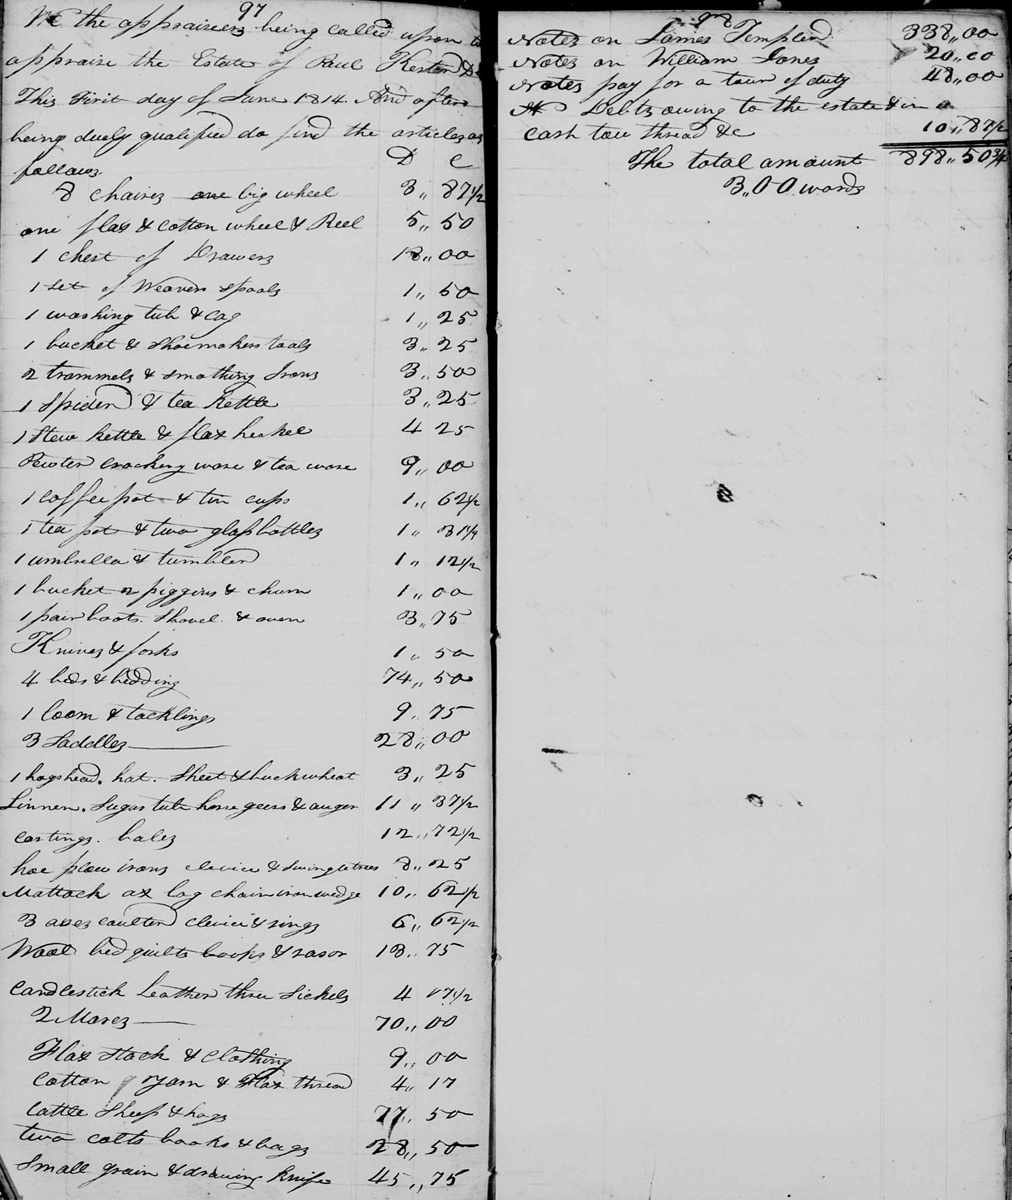 97
We the appraisers being called upon to
appraise the Estate of Paul Kester Decd
This First day of June 1814. And after
being duely qualified do find the articles as
follows D C
8 chaires one big wheel 3,, 87 1/2
one flax & cotton wheel & Reel 5,, 50
1 chest of Drawers 18,, 00
1 Set of Weavers spools 1,, 50
1 washing tub & cag 1,, 25
1 bucket & Shoemakers tools 3,, 25
2 trammels & smothing Irons 3,, 50
1 Spider & tea kettle 3,, 25
1 Stew kettle & flax heckel 4 25
Pewter crockery ware & tea ware 9,, 00
1 coffee pot & tin cups 1,, 62 1/2
1 tea pot & two glass bottles 1,, 31 1/4
1 umbrella & tumbler 1,, 12 1/2
1 bucket 2 piggins & churn 1,, 00
1 pair boots. Shovel & oven 3,, 75
Knives & forks 1,, 50
4 beds & bedding 74,, 50
1 loom & tacklings 9,, 75
3 Saddles 28,, 00
1 hogshead. hat. Sheet & buckwheat 3,, 25
Linnen. Sugar tub horse geers & auger 11,, 37 1/2
castings. bales 12,, 72 1/2
hoe plow irons clevice & swingletrees 8,, 25
Mattock ax log chain iron wedge 10,, 62 1/2
3 axes coulter clevice & rings 6,, 62 1/2
Wool bed quilts books & rasor 13,, 75
Candlestick Leather three Sickels 4 07 1/2
2 Mares 70,, 00
Flax Stack & clothing 9,, 00
Cotton yarn & Flax thread 4,, 17
Cattle Sheep & hogs 77,, 50
two colts books & bags 28,, 50
Small grain & drawing Knife 45,, 75
98
Notes on James Templer 338,, 00
Notes on William Jones 20,, 00
Notes pay for a tour of duty 48,, 00
Debts owing to the estate & in a
cash tow thread &c 10,, 87 1/2
The total amount 898,, 50 3/4
3,,00 words